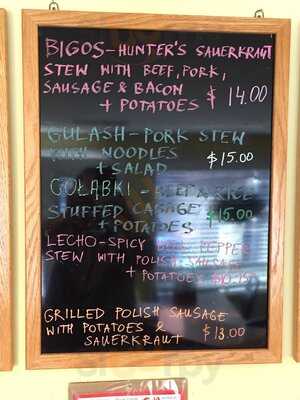 BIGOS-HUNTER'S SAUERKRAUT
STEW WITH BEEF, PORK,
SAUSAGE & BACON
+ POTATOES $14.00
GULASH-PORK STEW
WITH NOODLES $15.00
+ SALAD
GOŁĄBKI - BEEF & RICE
STUFFED CABAGE $15.00
+ POTATOES
LECHO-SPICY PEPPER
STEW WITH POLISH SAUSAGE
+ POTATOES
GRILLED POLISH SAUSAGE
WITH POTATOES & $13.00
SAUERKRAUT